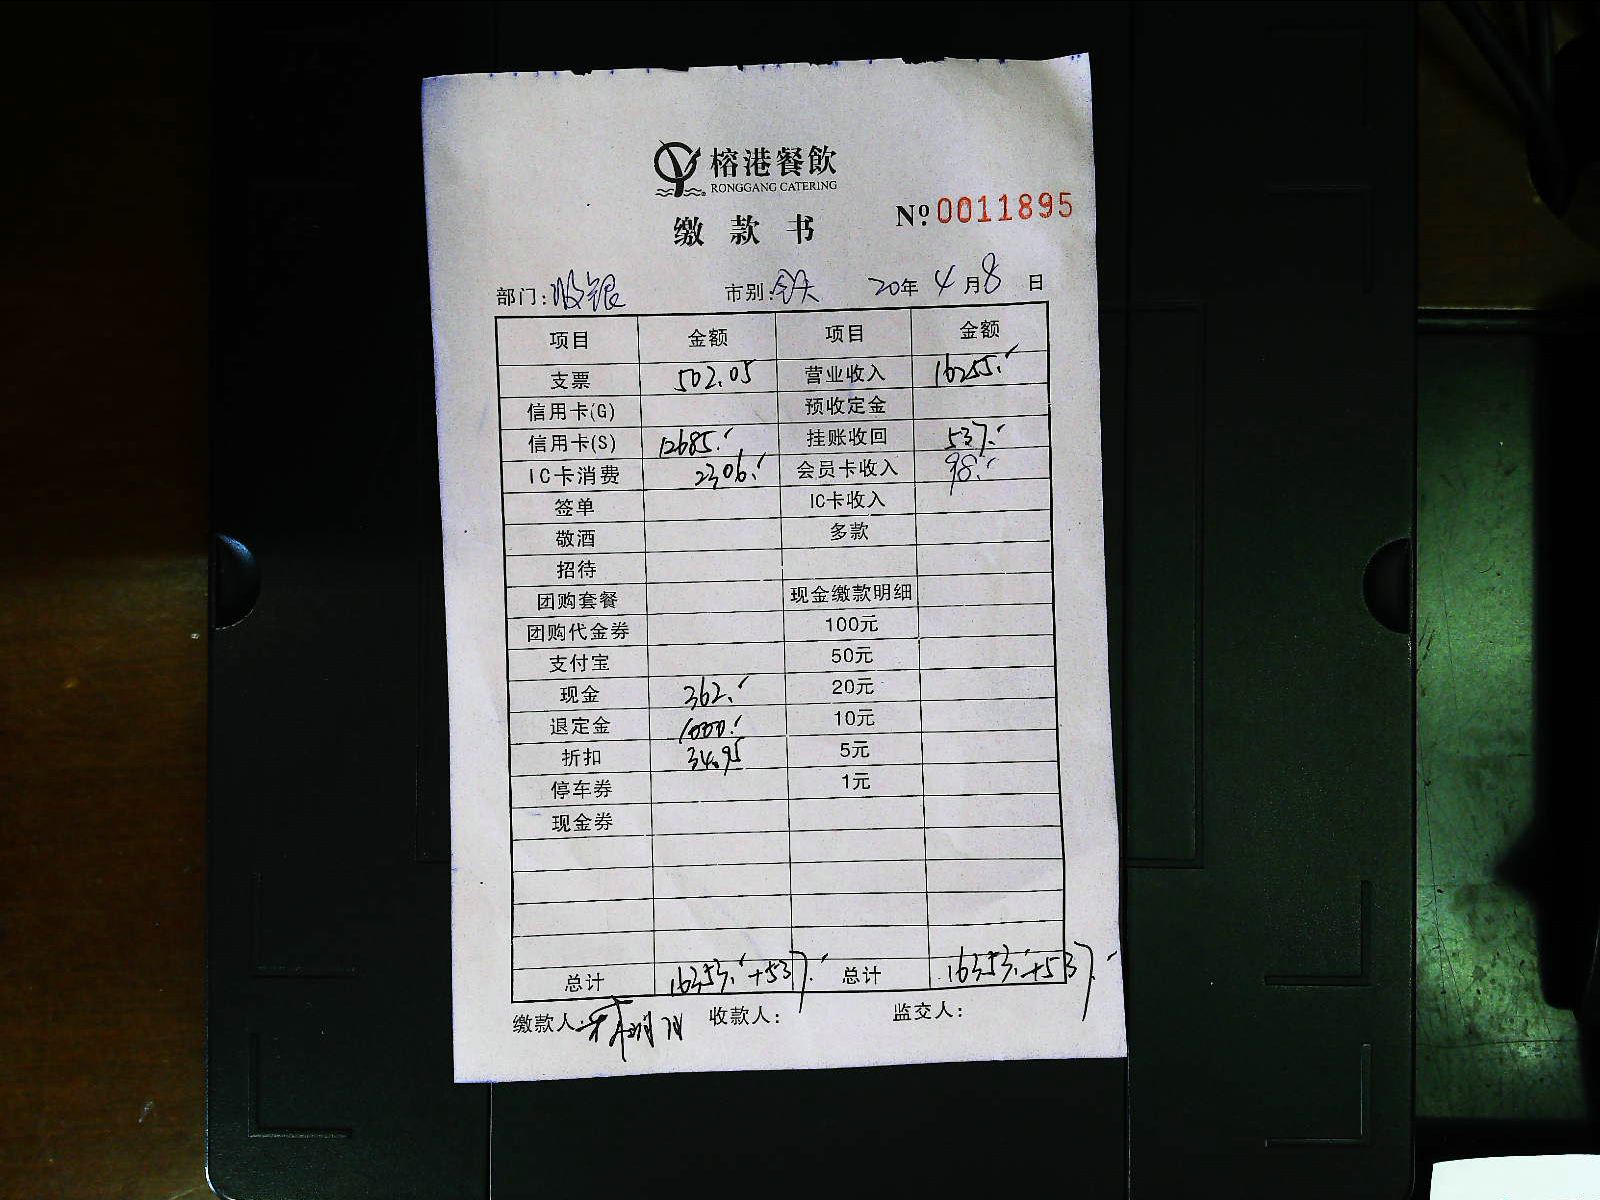 榕港餐飲
RONGGANG CATERING
缴款书 Nº 0011895
部门:收银 市别:全天 20年4月8日
项目 金额 项目 金额
支票 502.05 营业收入 16255.
信用卡(G) 预收定金
信用卡(S) 12685. 挂账收回 537.
IC卡消费 2306. 会员卡收入 98.
签单 IC卡收入
敬酒 多款
招待
团购套餐 现金缴款明细
团购代金券 100元
支付宝 50元
现金 362. 20元
退定金 1000. 10元
折扣 34.95 5元
停车券 1元
现金券
总计 16353.+537. 总计 16353.+537.
缴款人: 收款人: 监交人: